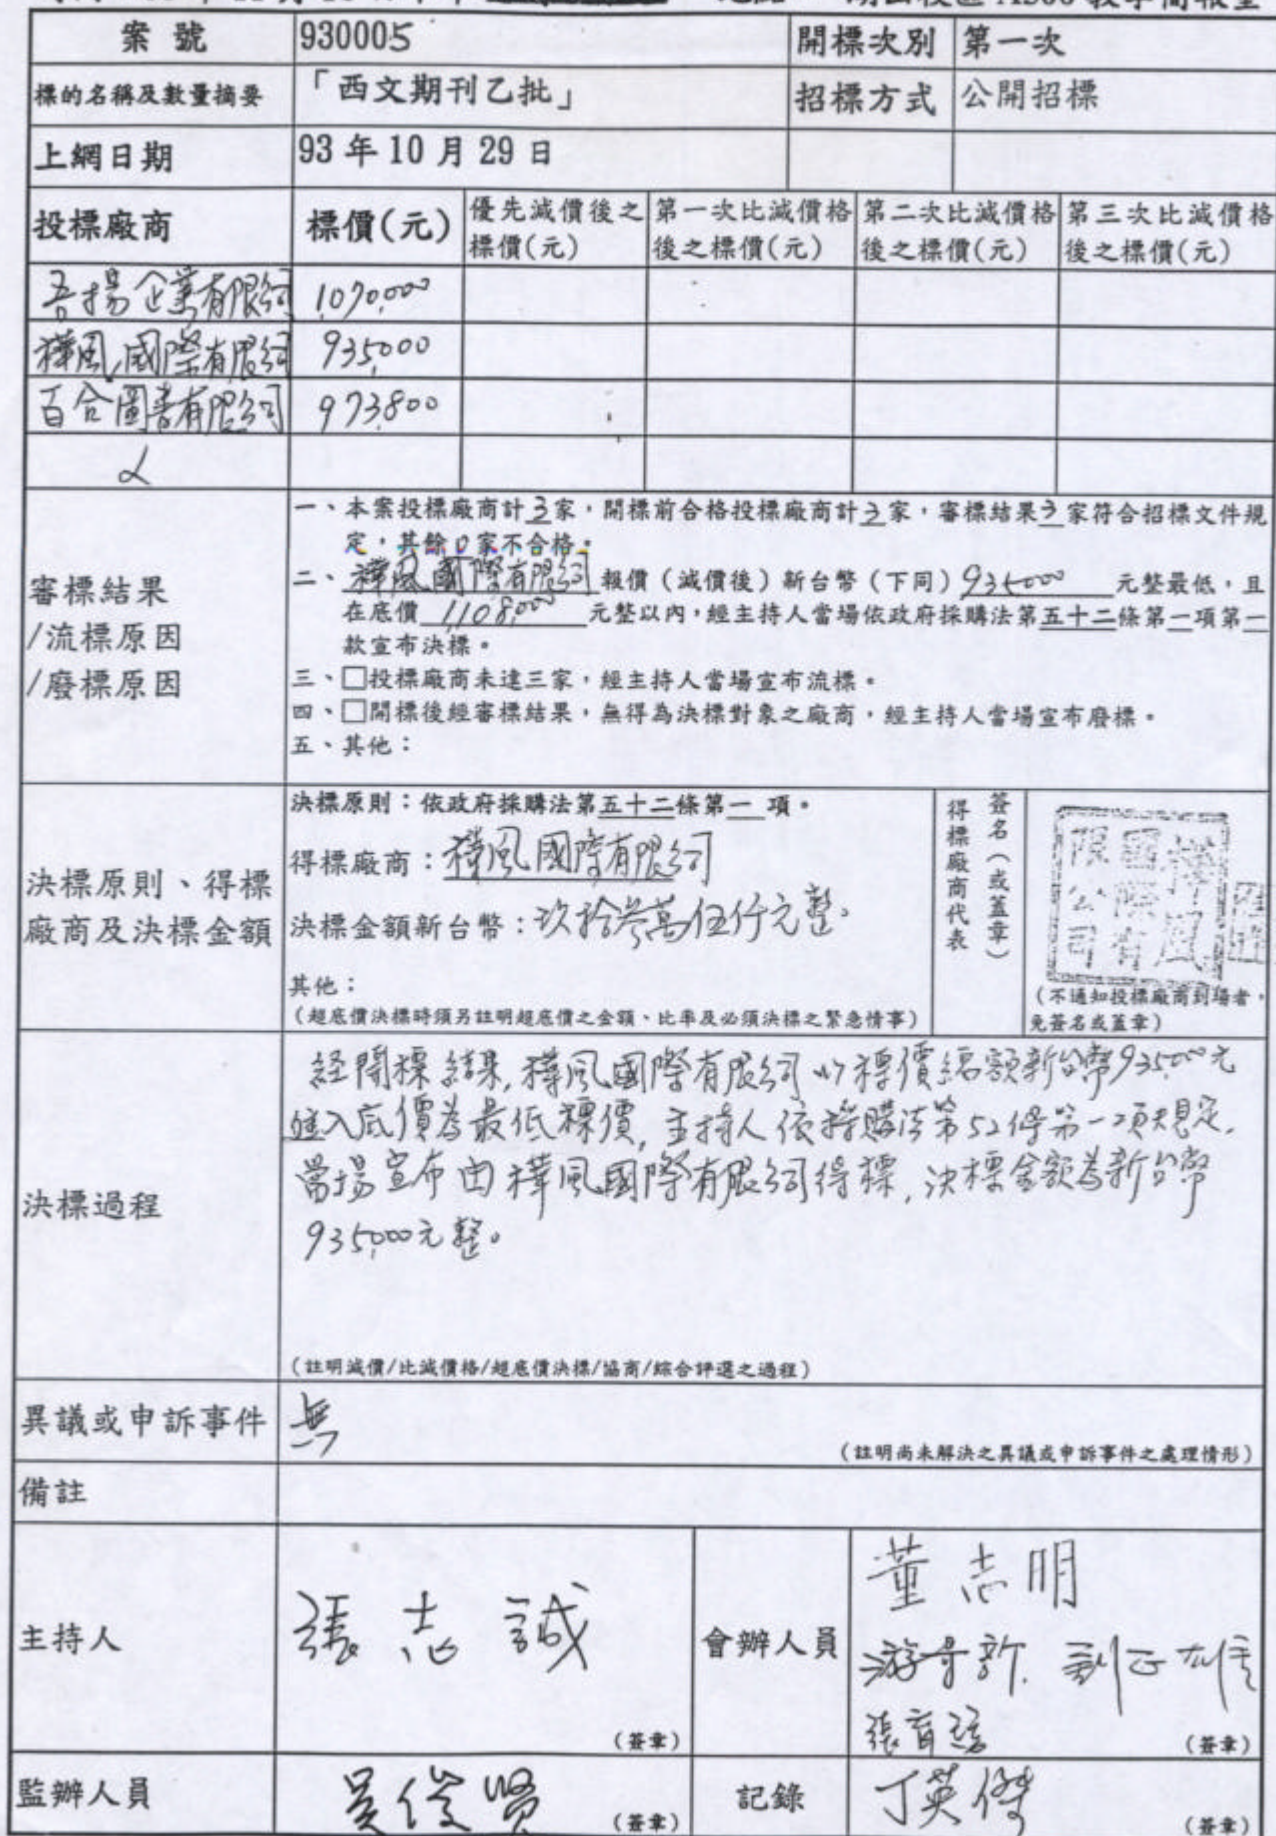 案號 930005 開標次別 第一次
標的名稱及數量摘要 「西文期刊乙批」 招標方式 公開招標
上網日期 93 年 10 月 29 日
投標廠商 標價(元) 優先減價後之標價(元) 第一次比減價格後之標價(元) 第二次比減價格後之標價(元) 第三次比減價格後之標價(元)
吾揚企業有限公司 1,070,000
樺風國際有限公司 935,000
百合圖書有限公司 973,800
審標結果
/流標原因
/廢標原因
一、本案投標廠商計3家,開標前合格投標廠商計3家,審標結果3家符合招標文件規
定,其餘0家不合格。
二、樺風國際有限公司報價(減價後)新台幣(下同)935,000元整最低,且
在底價1,108,000元整以內,經主持人當場依政府採購法第五十二條第一項第一
款宣布決標。
三、□投標廠商未達三家,經主持人當場宣布流標。
四、□開標後經審標結果,無得為決標對象之廠商,經主持人當場宣布廢標。
五、其他:
決標原則、得標
廠商及決標金額
決標原則:依政府採購法第五十二條第一項。
得標廠商:樺風國際有限公司
決標金額新台幣:玖拾參萬伍仟元整。
其他:
(超底價決標時須另註明超底價之金額、比率及必須決標之緊急情事)
得標廠商代表
簽名(或蓋章)
樺風
國際有
限公司
(不通知投標廠商到場者,
免簽名或蓋章)
決標過程
經開標結果,樺風國際有限公司以標價總額新台幣935,000元
進入底價為最低標價,主持人依採購法第52條第一項規定,
當場宣布由樺風國際有限公司得標,決標金額為新台幣
935,000元整。
(註明減價/比減價格/超底價決標/協商/綜合評選之過程)
異議或申訴事件 無 (註明尚未解決之異議或申訴事件之處理情形)
備註
主持人 張志誠 (簽章)
會辦人員 董志明
劉正雄
(簽章)
監辦人員 吳俊賢 (簽章) 記錄 丁英傑 (簽章)